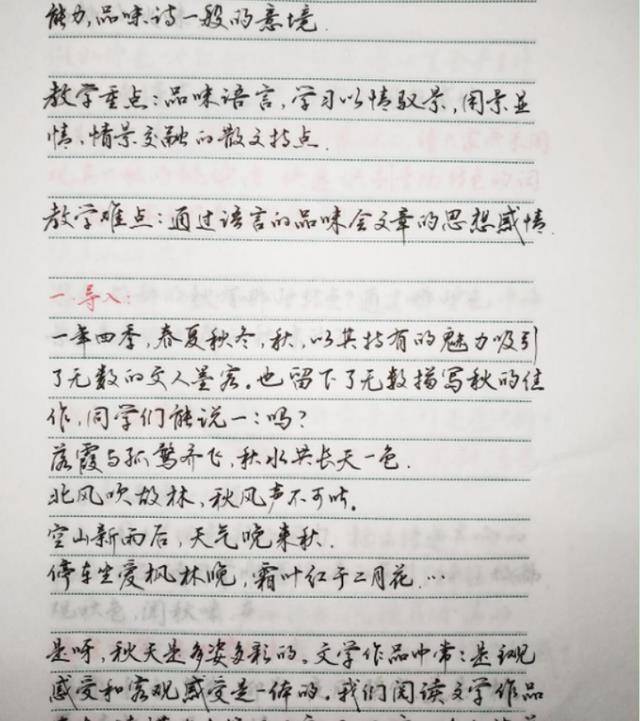 能力,品味诗一般的意境.
教学重点:品味语言,学习以情驭景,用景显
情,情景交融的散文特点.
教学难点:通过语言的品味会文章的思想感情.
一.导入:
一年四季,春夏秋冬,秋,以其特有的魅力吸引
了无数的文人墨客。也留下了无数描写秋的佳
作,同学们能说一:吗?
落霞与孤鹜齐飞,秋水共长天一色.
北风吹故林,秋风声不可听。
空山新雨后,天气晚来秋.
停车坐爱枫林晚,霜叶红于二月花.…
是呀,秋天是多姿多彩的。文学作品中常:是主观
感受和客观感受是一体的。我们阅读文学作品